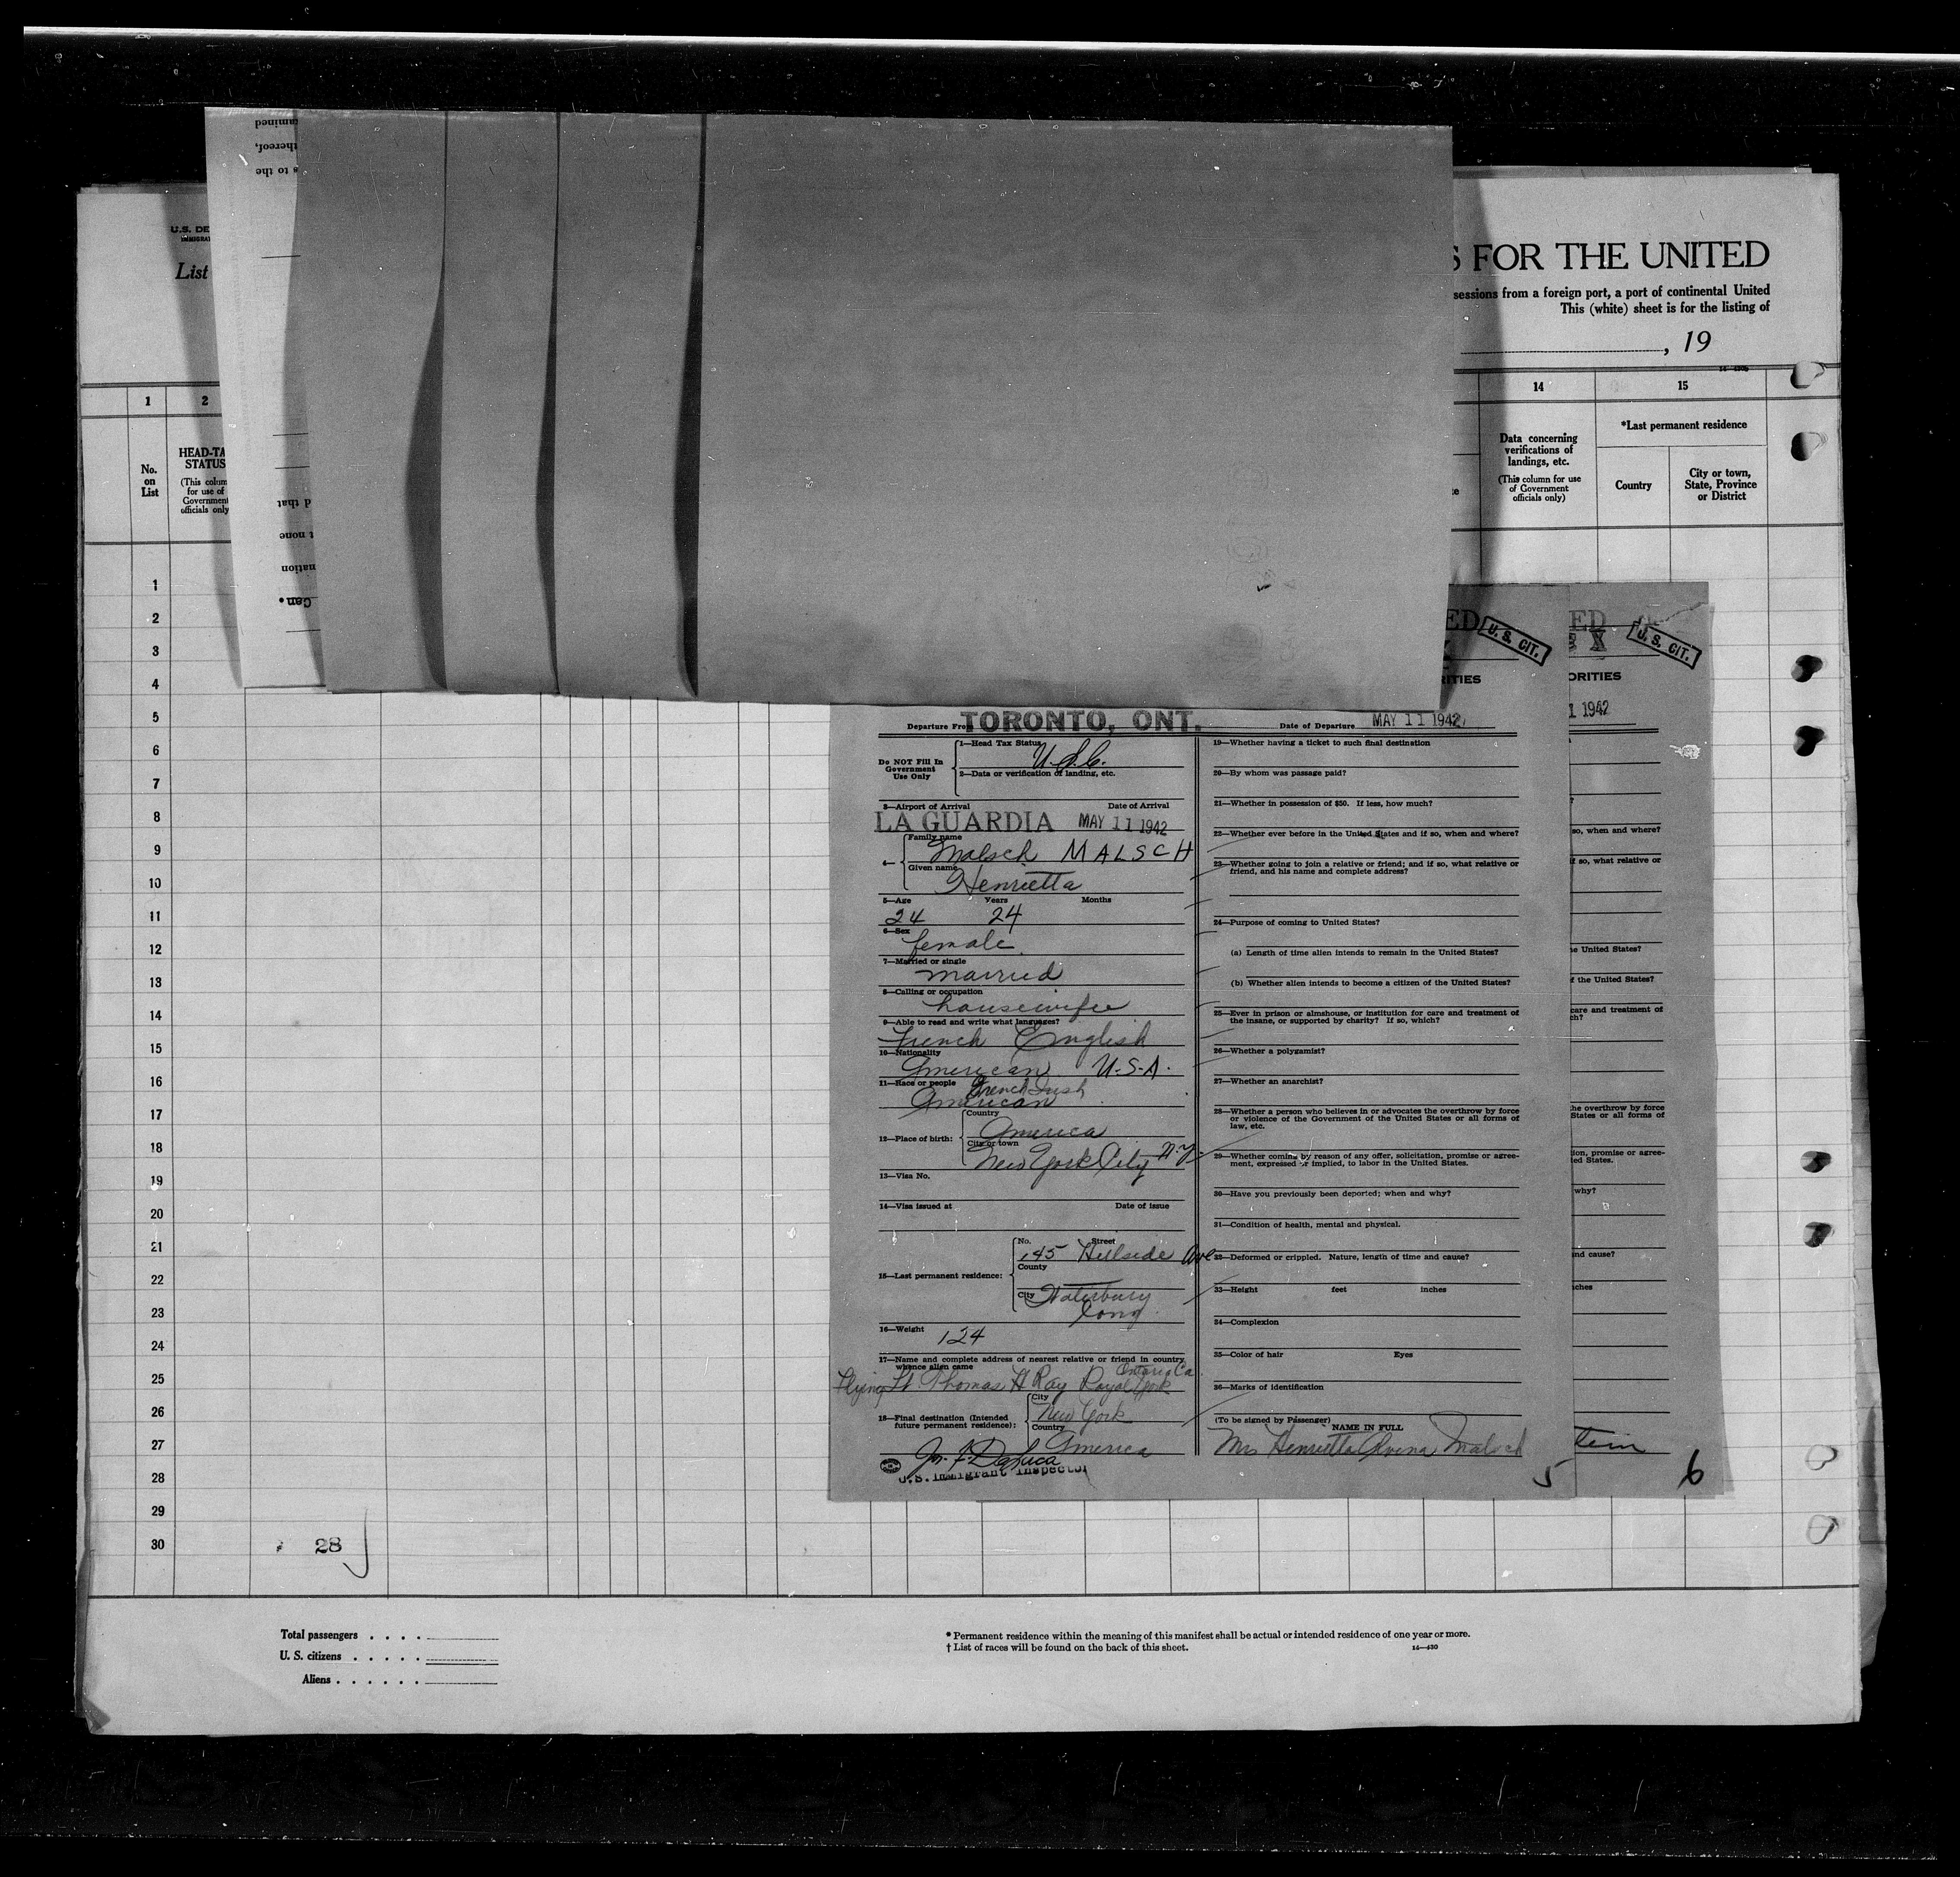 U.S. DE
IMMIGRAT
List
S FOR THE UNITED
sessions from a foreign port, a port of continental United
This (white) sheet is for the listing of
, 19
amined
thereof,
s to the
d that
t none
nation
Gen.
1 2 14 15
No. on List
HEAD-TA
STATUS
(This colum
for use of
Government
officials only
Data concerning
verifications of
landings, etc.
(This column for use
of Government
officials only)
*Last permanent residence
Country
City or town,
State, Province
or District
1
2
3
4
5
6
7
8
9
10
11
12
13
14
15
16
17
18
19
20
21
22
23
24
25
26
27
28
29
30
28
ED
U. S. CIT.
RITIES
Departure Fro TORONTO, ONT.
Date of Departure MAY 11 1942
Do NOT Fill In
Government
Use Only
1—Head Tax Status
U.S.C.
2—Data or verification of landing, etc.
3—Airport of Arrival Date of Arrival
LA GUARDIA MAY 11 1942
4—
Family name
Malsch MALSCH
Given name
Henrietta
5—Age Years Months
24 24
6—Sex
female
7—Married or single
married
8—Calling or occupation
housewife
9—Able to read and write what languages?
French English
10—Nationality
American U.S.A.
11—Race or people French Irish
American
12—Place of birth:
Country
America
City or town
New York City N.Y.
13—Visa No.
14—Visa issued at Date of issue
15—Last permanent residence:
No. Street
145 Hillside Ave
County
City Waterbury
Conn
16—Weight 124
17—Name and complete address of nearest relative or friend in country
whence alien came
Ontario Ca
Flying Lt. Thomas H Ray Royal York
18—Final destination (Intended
future permanent residence):
City
New York
Country
America
U.S. Immigrant Inspector
19—Whether having a ticket to such final destination
20—By whom was passage paid?
21—Whether in possession of $50. If less, how much?
22—Whether ever before in the United States and if so, when and where?
23—Whether going to join a relative or friend; and if so, what relative or
friend, and his name and complete address?
24—Purpose of coming to United States?
(a) Length of time alien intends to remain in the United States?
(b) Whether alien intends to become a citizen of the United States?
25—Ever in prison or almshouse, or institution for care and treatment of
the insane, or supported by charity? If so, which?
26—Whether a polygamist?
27—Whether an anarchist?
28—Whether a person who believes in or advocates the overthrow by force
or violence of the Government of the United States or all forms of
law, etc.
29—Whether coming by reason of any offer, solicitation, promise or agree-
ment, expressed or implied, to labor in the United States.
30—Have you previously been deported; when and why?
31—Condition of health, mental and physical.
32—Deformed or crippled. Nature, length of time and cause?
33—Height feet inches
34—Complexion
35—Color of hair Eyes
36—Marks of identification
(To be signed by Passenger)
NAME IN FULL
Mrs Henrietta Malsch
5
ED
X
U. S. CIT.
ORITIES
1 1942
?
so, when and where?
if so, what relative or
he United States?
f the United States?
care and treatment of
ch?
he overthrow by force
States or all forms of
ion, promise or agree-
ted States.
why?
nd cause?
ches
tein
6
Total passengers
U. S. citizens
Aliens
* Permanent residence within the meaning of this manifest shall be actual or intended residence of one year or more.
† List of races will be found on the back of this sheet.